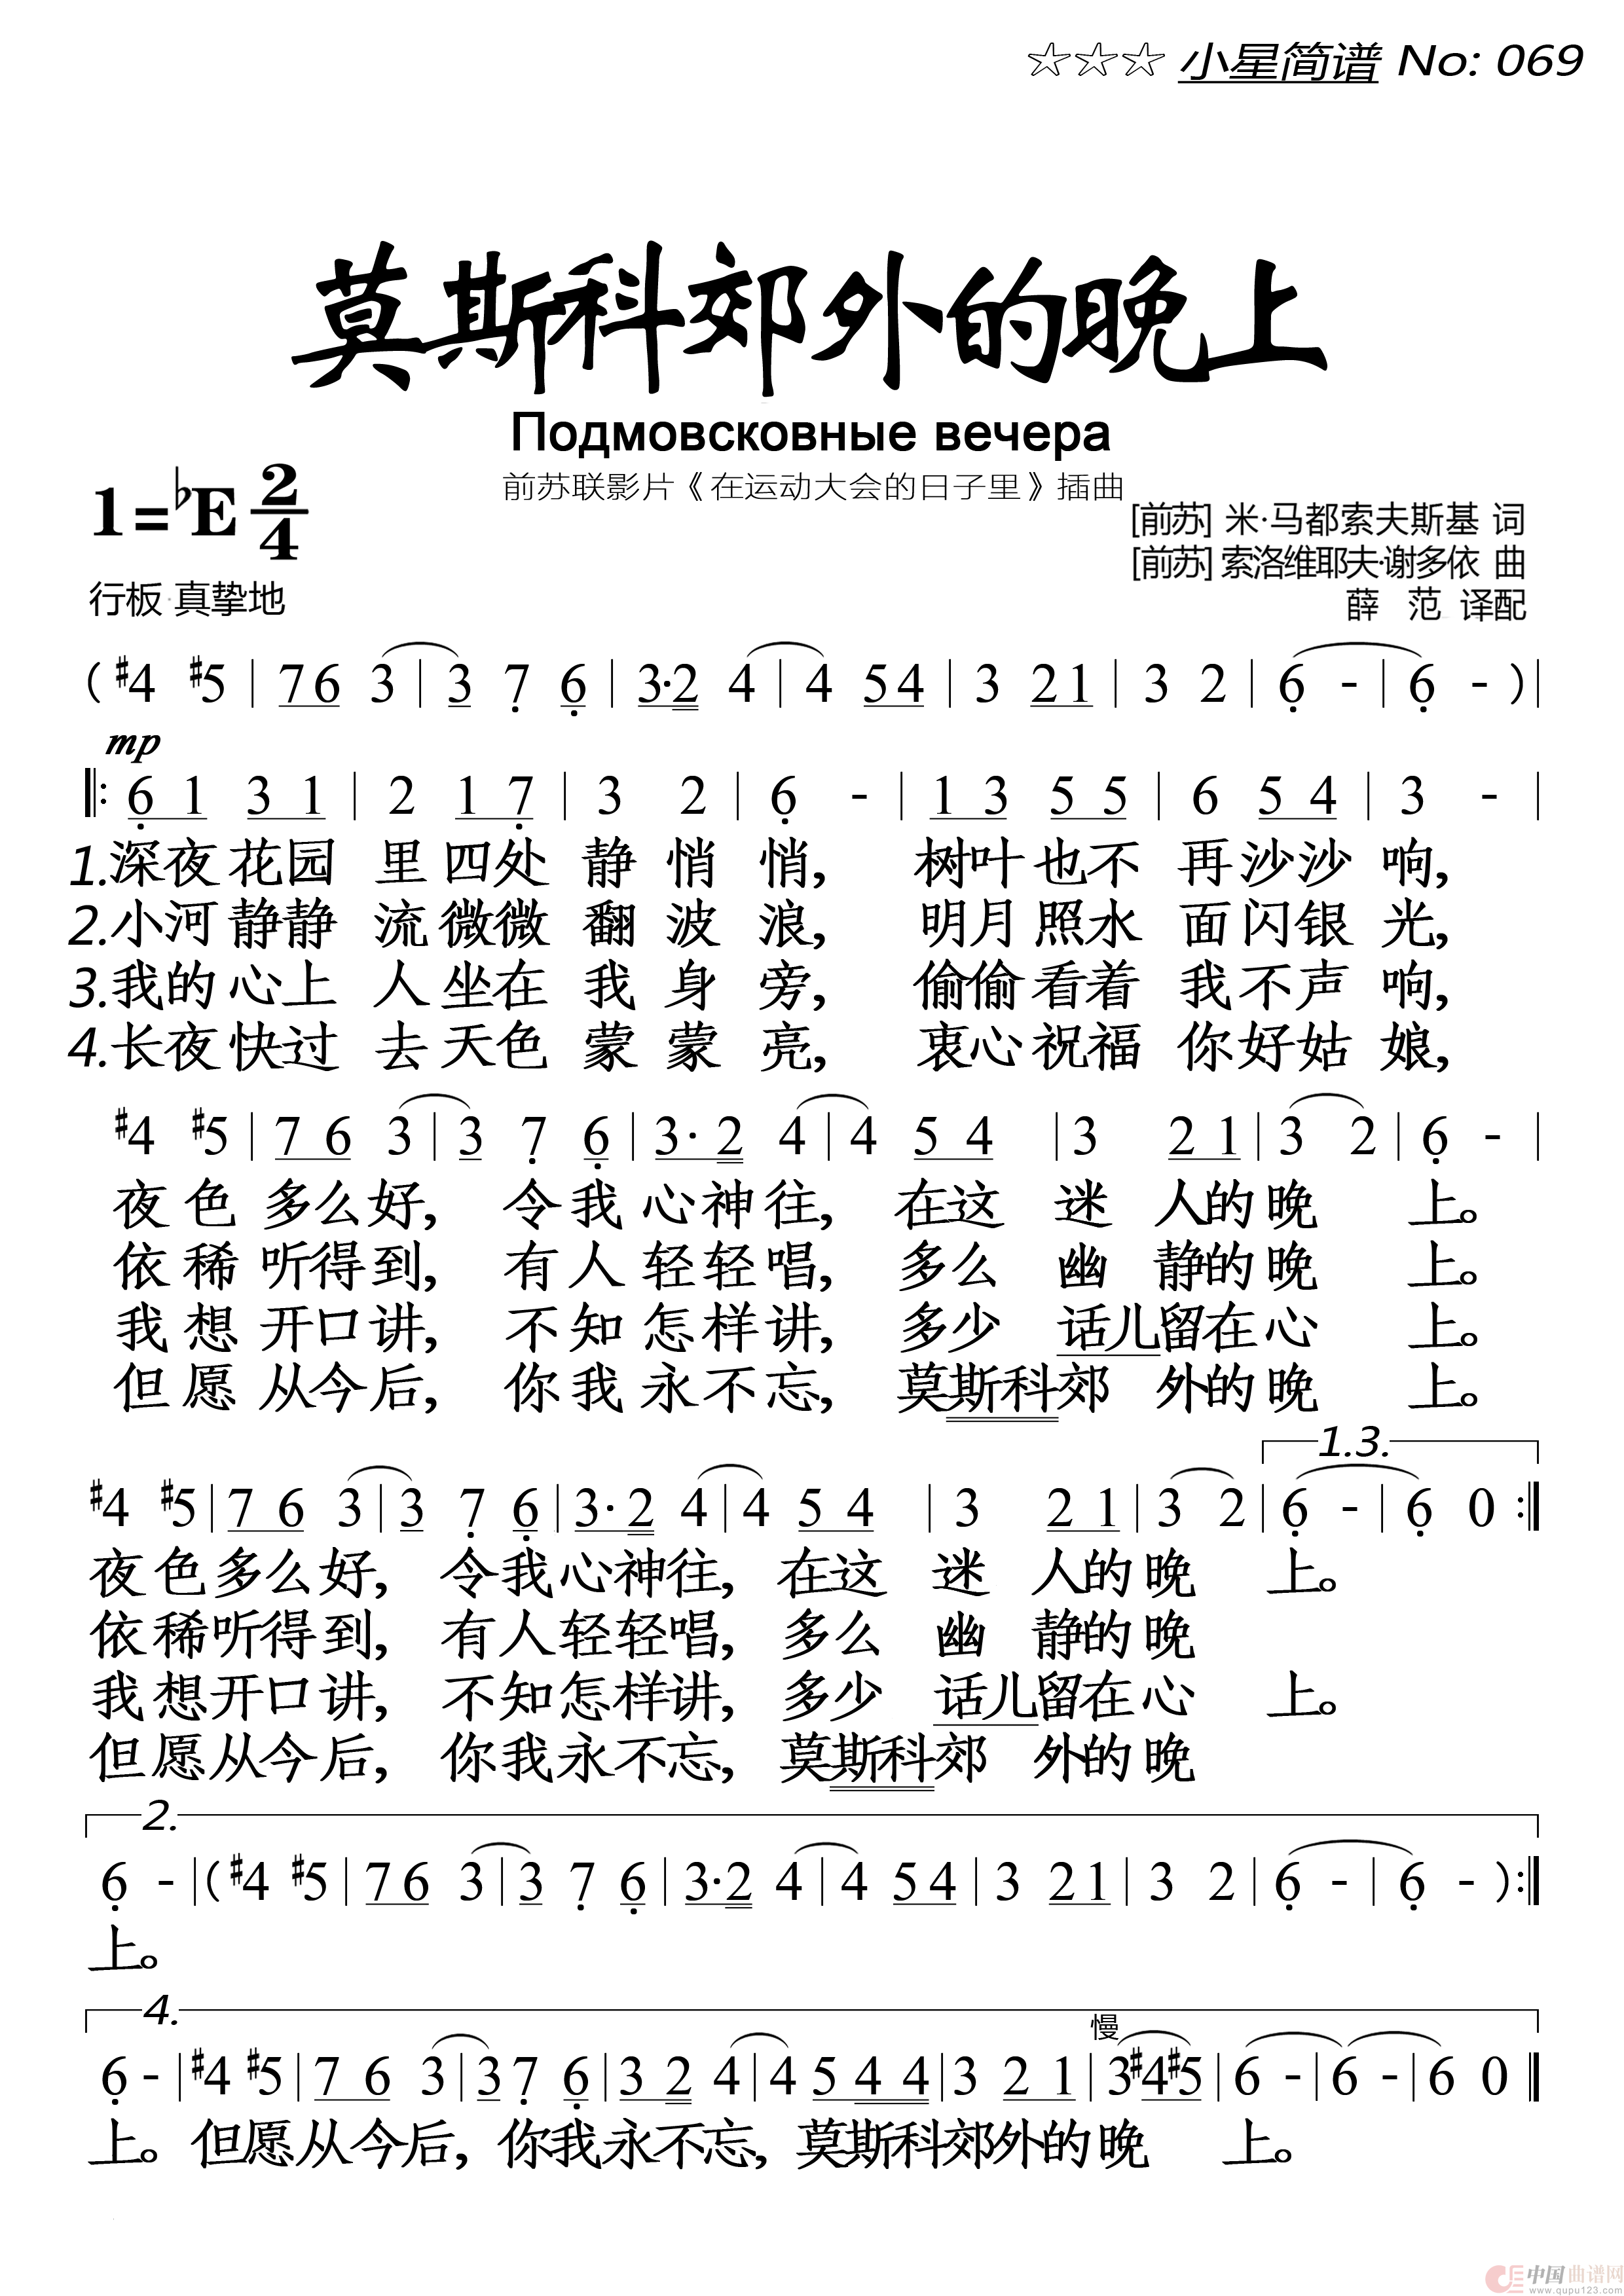 ☆☆☆ 小星简谱 No: 069
莫斯科郊外的晚上
Подмовсковные вечера
前苏联影片《在运动大会的日子里》插曲
1=♭E 2/4
[前苏] 米·马都索夫斯基 词
[前苏] 索洛维耶夫·谢多依 曲
行板·真挚地
薛 范 译配
( #4 #5 | 7 6 3 | 3 7 6 | 3· 2 4 | 4 5 4 | 3 2 1 | 3 2 | 6 - | 6 - ) |
mp
‖: 6 1 3 1 | 2 1 7 | 3 2 | 6 - | 1 3 5 5 | 6 5 4 | 3 - |
1.深夜花园 里四处 静悄悄, 树叶也不 再沙沙响,
2.小河静静 流微微 翻波浪, 明月照水 面闪银光,
3.我的心上 人坐在 我身旁, 偷偷看着 我不声响,
4.长夜快过 去天色 蒙蒙亮, 衷心祝福 你好姑娘,
#4 #5 | 7 6 3 | 3 7 6 | 3· 2 4 | 4 5 4 | 3 2 1 | 3 2 | 6 - |
夜色多么好, 令我心神往, 在这 迷 人的晚 上。
依稀听得到, 有人轻轻唱, 多么 幽 静的晚 上。
我想开口讲, 不知怎样讲, 多少 话儿留在心 上。
但愿从今后, 你我永不忘, 莫斯科郊 外的晚 上。
1.3.
#4 #5 | 7 6 3 | 3 7 6 | 3· 2 4 | 4 5 4 | 3 2 1 | 3 2 | 6 - | 6 0 :‖
夜色多么好, 令我心神往, 在这 迷 人的晚 上。
依稀听得到, 有人轻轻唱, 多么 幽 静的晚
我想开口讲, 不知怎样讲, 多少 话儿留在心 上。
但愿从今后, 你我永不忘, 莫斯科郊 外的晚
2.
6 - | ( #4 #5 | 7 6 3 | 3 7 6 | 3· 2 4 | 4 5 4 | 3 2 1 | 3 2 | 6 - | 6 - ) :‖
上。
4.
慢
6 - | #4 #5 | 7 6 3 | 3 7 6 | 3 2 4 | 4 5 4 4 | 3 2 1 | 3 #4 #5 | 6 - | 6 - | 6 0 ‖
上。但愿从今后, 你我永不忘, 莫斯科郊外的晚 上。
中国曲谱网
www.qupu123.com